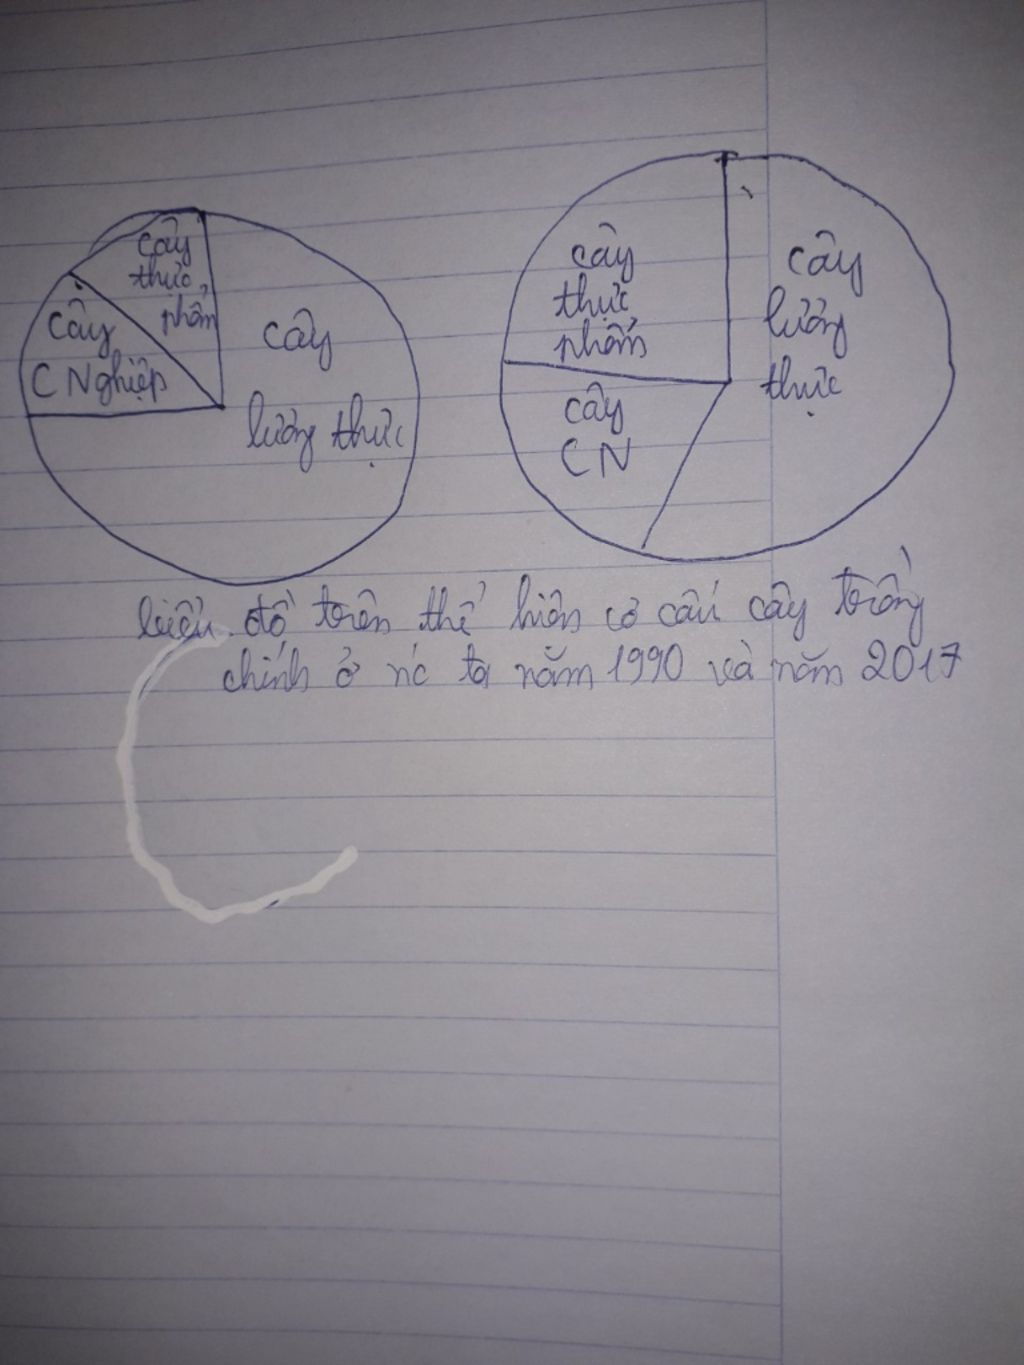 cây
thực
phẩm
cây
C Nghiệp
cây
lương thực
cây
thực
phẩm
cây
CN
cây
lương
thực
biểu đồ trên thể hiện cơ cấu cây trồng
chính ở nc ta năm 1990 và năm 2017